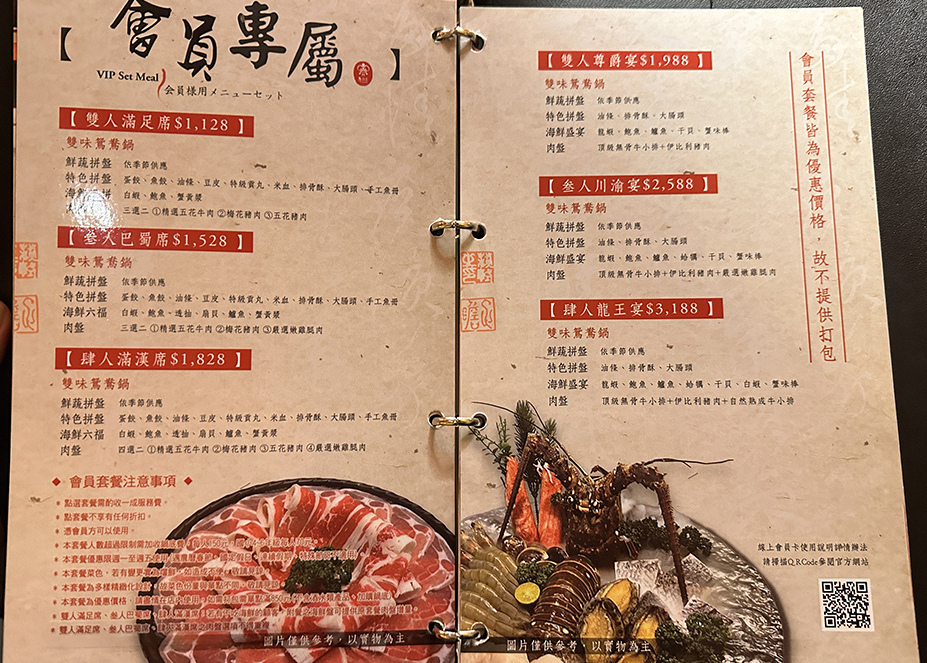 【會員專屬】
VIP Set Meal
会員様用メニューセット
【雙人滿足席$1,128】
雙味鴛鴦鍋
鮮蔬拼盤 依季節供應
特色拼盤 蛋餃、魚餃、油條、豆皮、特級貢丸、米血、排骨酥、大腸頭、手工魚冊
海鮮 白蝦、鮑魚、蟹黃漿
三選二 ①精選五花牛肉 ②梅花豬肉 ③五花豬肉
【叁人巴蜀席$1,528】
雙味鴛鴦鍋
鮮蔬拼盤 依季節供應
特色拼盤 蛋餃、魚餃、油條、豆皮、特級貢丸、米血、排骨酥、大腸頭、手工魚冊
海鮮六福 白蝦、鮑魚、透抽、扇貝、鱸魚、蟹黃漿
肉盤 三選二 ①精選五花牛肉 ②梅花豬肉 ③嚴選嫩雞腿肉
【肆人滿漢席$1,828】
雙味鴛鴦鍋
鮮蔬拼盤 依季節供應
特色拼盤 蛋餃、魚餃、油條、豆皮、特級貢丸、米血、排骨酥、大腸頭、手工魚冊
海鮮六福 白蝦、鮑魚、透抽、扇貝、鱸魚、蟹黃漿
肉盤 四選二 ①精選五花牛肉 ②梅花豬肉 ③五花豬肉 ④嚴選嫩雞腿肉
◆ 會員套餐注意事項 ◆
* 點選套餐需酌收一成服務費。
* 點套餐不享有任何折扣。
* 憑會員方可以使用。
* 本套餐人數超過限制需加收鍋底費
* 本套餐優惠限週一至週五
* 本套餐菜色，若有變更
* 本套餐為多樣精緻化
* 本套餐為優惠價格，請
* 雙人滿足席、叁人巴蜀席、
* 雙人滿足席、叁人巴蜀席、肆人滿漢席之肉盤選項不得重複。
圖片僅供參考，以實物為主
【雙人尊爵宴$1,988】
雙味鴛鴦鍋
鮮蔬拼盤 依季節供應
特色拼盤 油條、排骨酥、大腸頭
海鮮盛宴 龍蝦、鮑魚、鱸魚、干貝、蟹味棒
肉盤 頂級無骨牛小排+伊比利豬肉
【叁人川渝宴$2,588】
雙味鴛鴦鍋
鮮蔬拼盤 依季節供應
特色拼盤 油條、排骨酥、大腸頭
海鮮盛宴 龍蝦、鮑魚、鱸魚、蛤蠣、干貝、蟹味棒
肉盤 頂級無骨牛小排+伊比利豬肉+嚴選嫩雞腿肉
【肆人龍王宴$3,188】
雙味鴛鴦鍋
鮮蔬拼盤 依季節供應
特色拼盤 油條、排骨酥、大腸頭
海鮮盛宴 龍蝦、鮑魚、鱸魚、蛤蠣、干貝、白蝦、蟹味棒
肉盤 頂級無骨牛小排+伊比利豬肉+自然熟成牛小排
會員套餐皆為優惠價格，故不提供打包
線上會員卡使用說明詳情辦法
請掃描QRCode參閱官方網站
圖片僅供參考，以實物為主